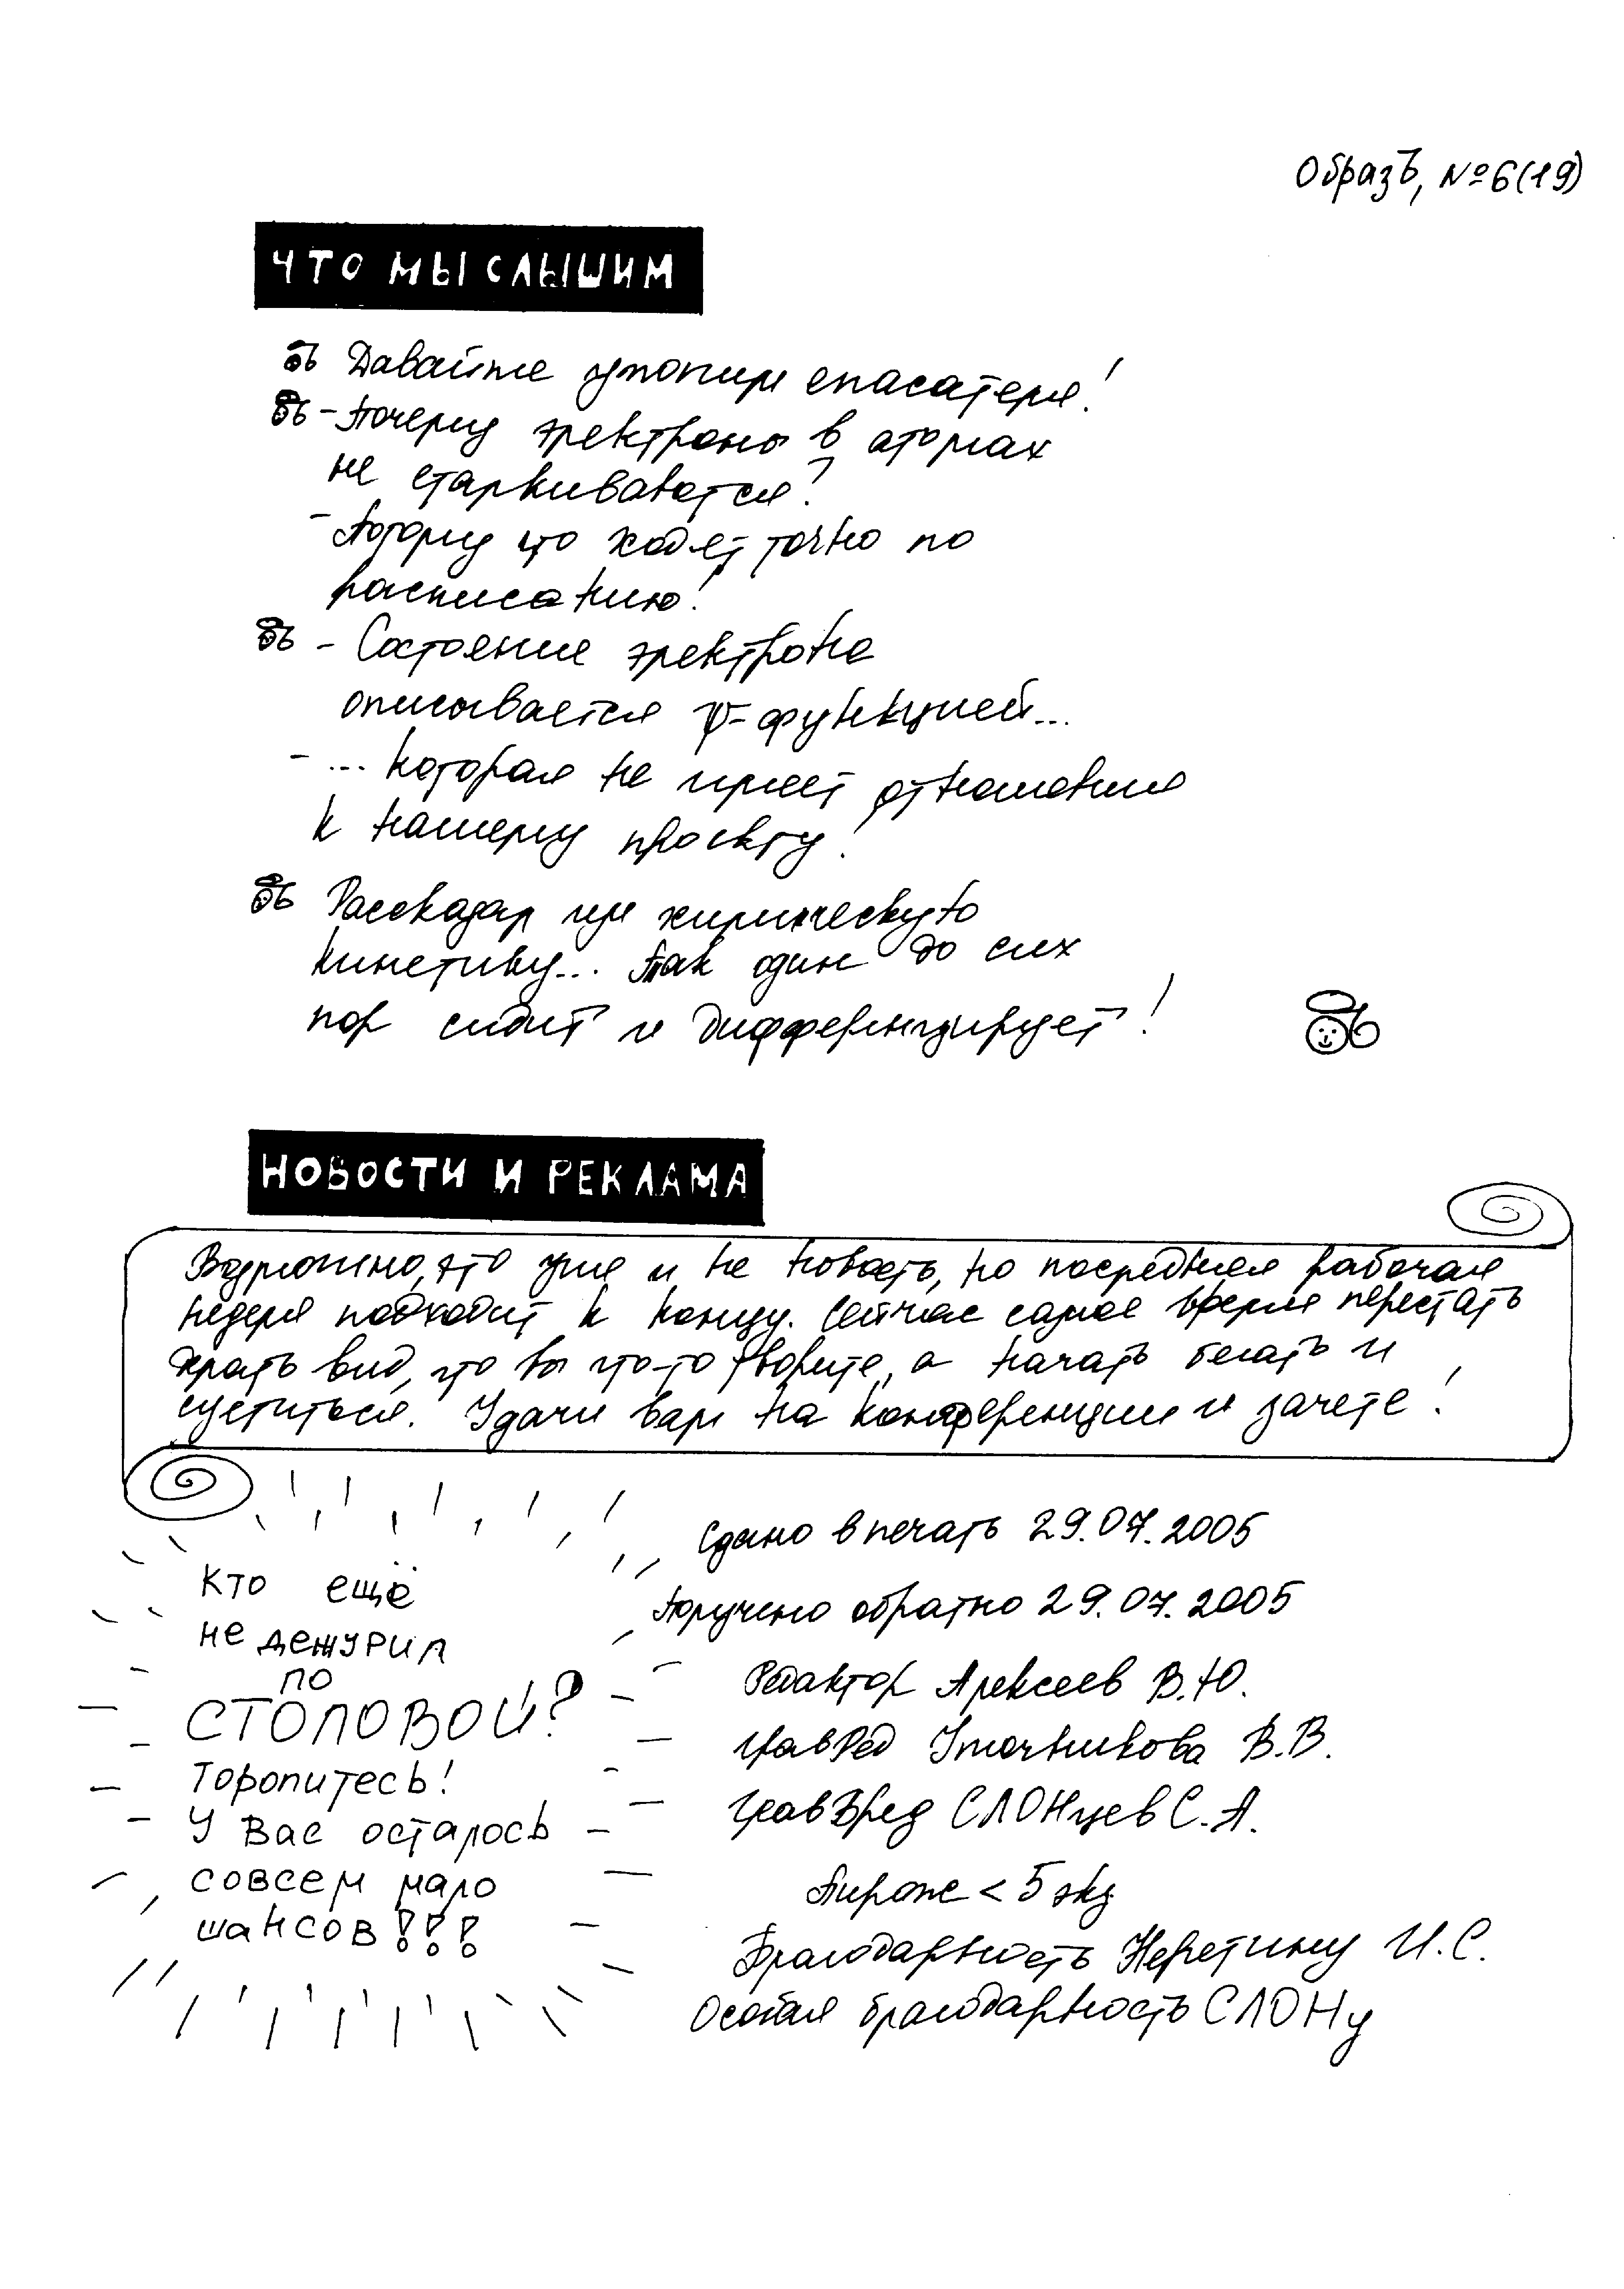 Образъ, №6(19)
ЧТО МЫ СЛЫШИМ
Давайте утопим спасателя!
- Почему электроны в атомах
не сталкиваются?
- Потому что ходят точно по
расписанию!
- Состояние электрона
описывается ψ-функцией...
- ... которая не имеет отношения
к нашему проекту!
Рассказал им химическую
кинетику... Так один до сих
пор сидит и дифференцирует!
НОВОСТИ И РЕКЛАМА
Возможно, это уже и не новость, но последняя рабочая
неделя подходит к концу. Сейчас самое время перестать
делать вид, что вы что-то творите, а начать бегать и
суетиться. Удачи вам на конференции и зачете!
Кто ещё
не дежурил
по
СТОЛОВОЙ?
Торопитесь!
У Вас осталось
совсем мало
шансов!!!
Сдано в печать 29.07.2005
Получено обратно 29.07.2005
Редактор Алексеев В.Ю.
ГлавРед Уточникова В.В.
ГлавВред СЛОНцев С.А.
Тираж < 5 экз
Благодарность Неретину И.С.
Особая благодарность СЛОНу